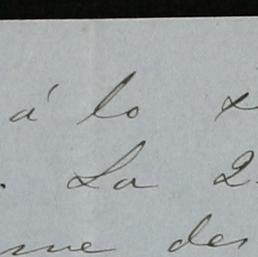 á lo
La 2
me des